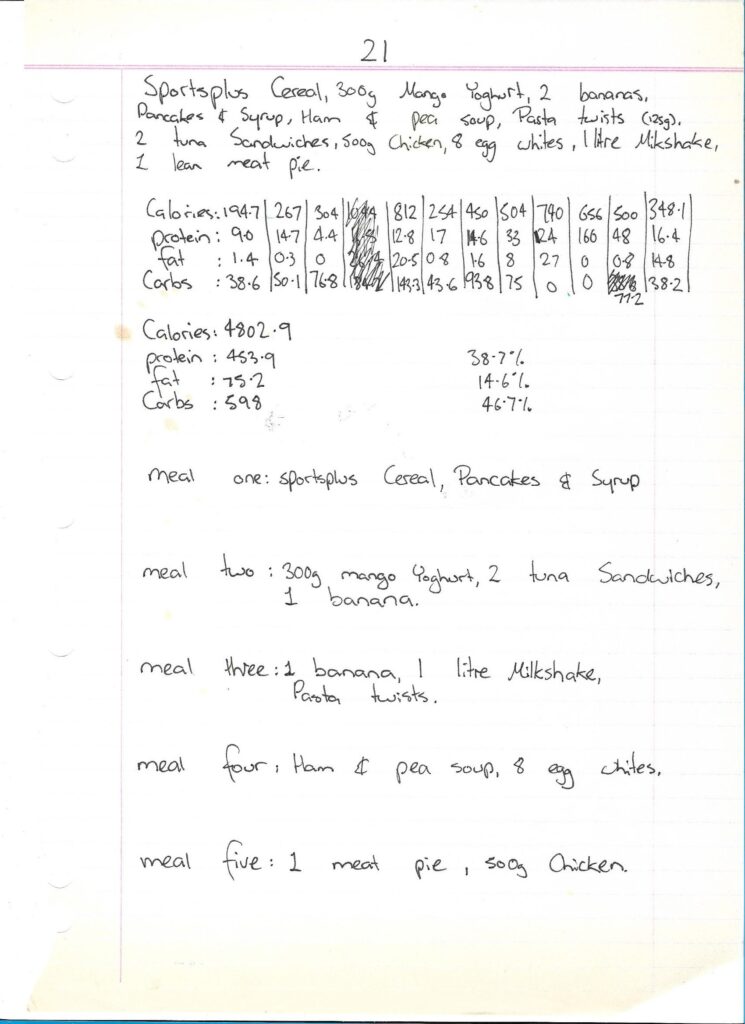 21
Sportsplus Cereal, 300g Mango Yoghurt, 2 bananas,
Pancakes & Syrup, Ham & pea soup, Pasta twists (125g),
2 tuna Sandwiches, 500g Chicken, 8 egg whites, 1 litre Milkshake,
1 lean meat pie.
Calories: 194.7 | 267 | 304 | 812 | 254 | 450 | 504 | 740 | 656 | 500 | 348.1
protein : 9.0 | 14.7 | 4.4 | 12.8 | 17 | 14.6 | 33 | 124 | 160 | 48 | 16.4
fat : 1.4 | 0.3 | 0 | 20.5 | 0.8 | 1.6 | 8 | 27 | 0 | 0.8 | 14.8
Carbs : 38.6 | 50.1 | 76.8 | 143.3 | 43.6 | 93.8 | 75 | 0 | 0 | 77.2 | 38.2
Calories: 4802.9
protein : 453.9 38.7%
fat : 75.2 14.6%
Carbs : 598 46.7%
meal one: sportsplus Cereal, Pancakes & Syrup
meal two: 300g mango Yoghurt, 2 tuna Sandwiches,
1 banana.
meal three: 1 banana, 1 litre Milkshake,
Pasta twists.
meal four: Ham & pea soup, 8 egg whites.
meal five: 1 meat pie, 500g Chicken.